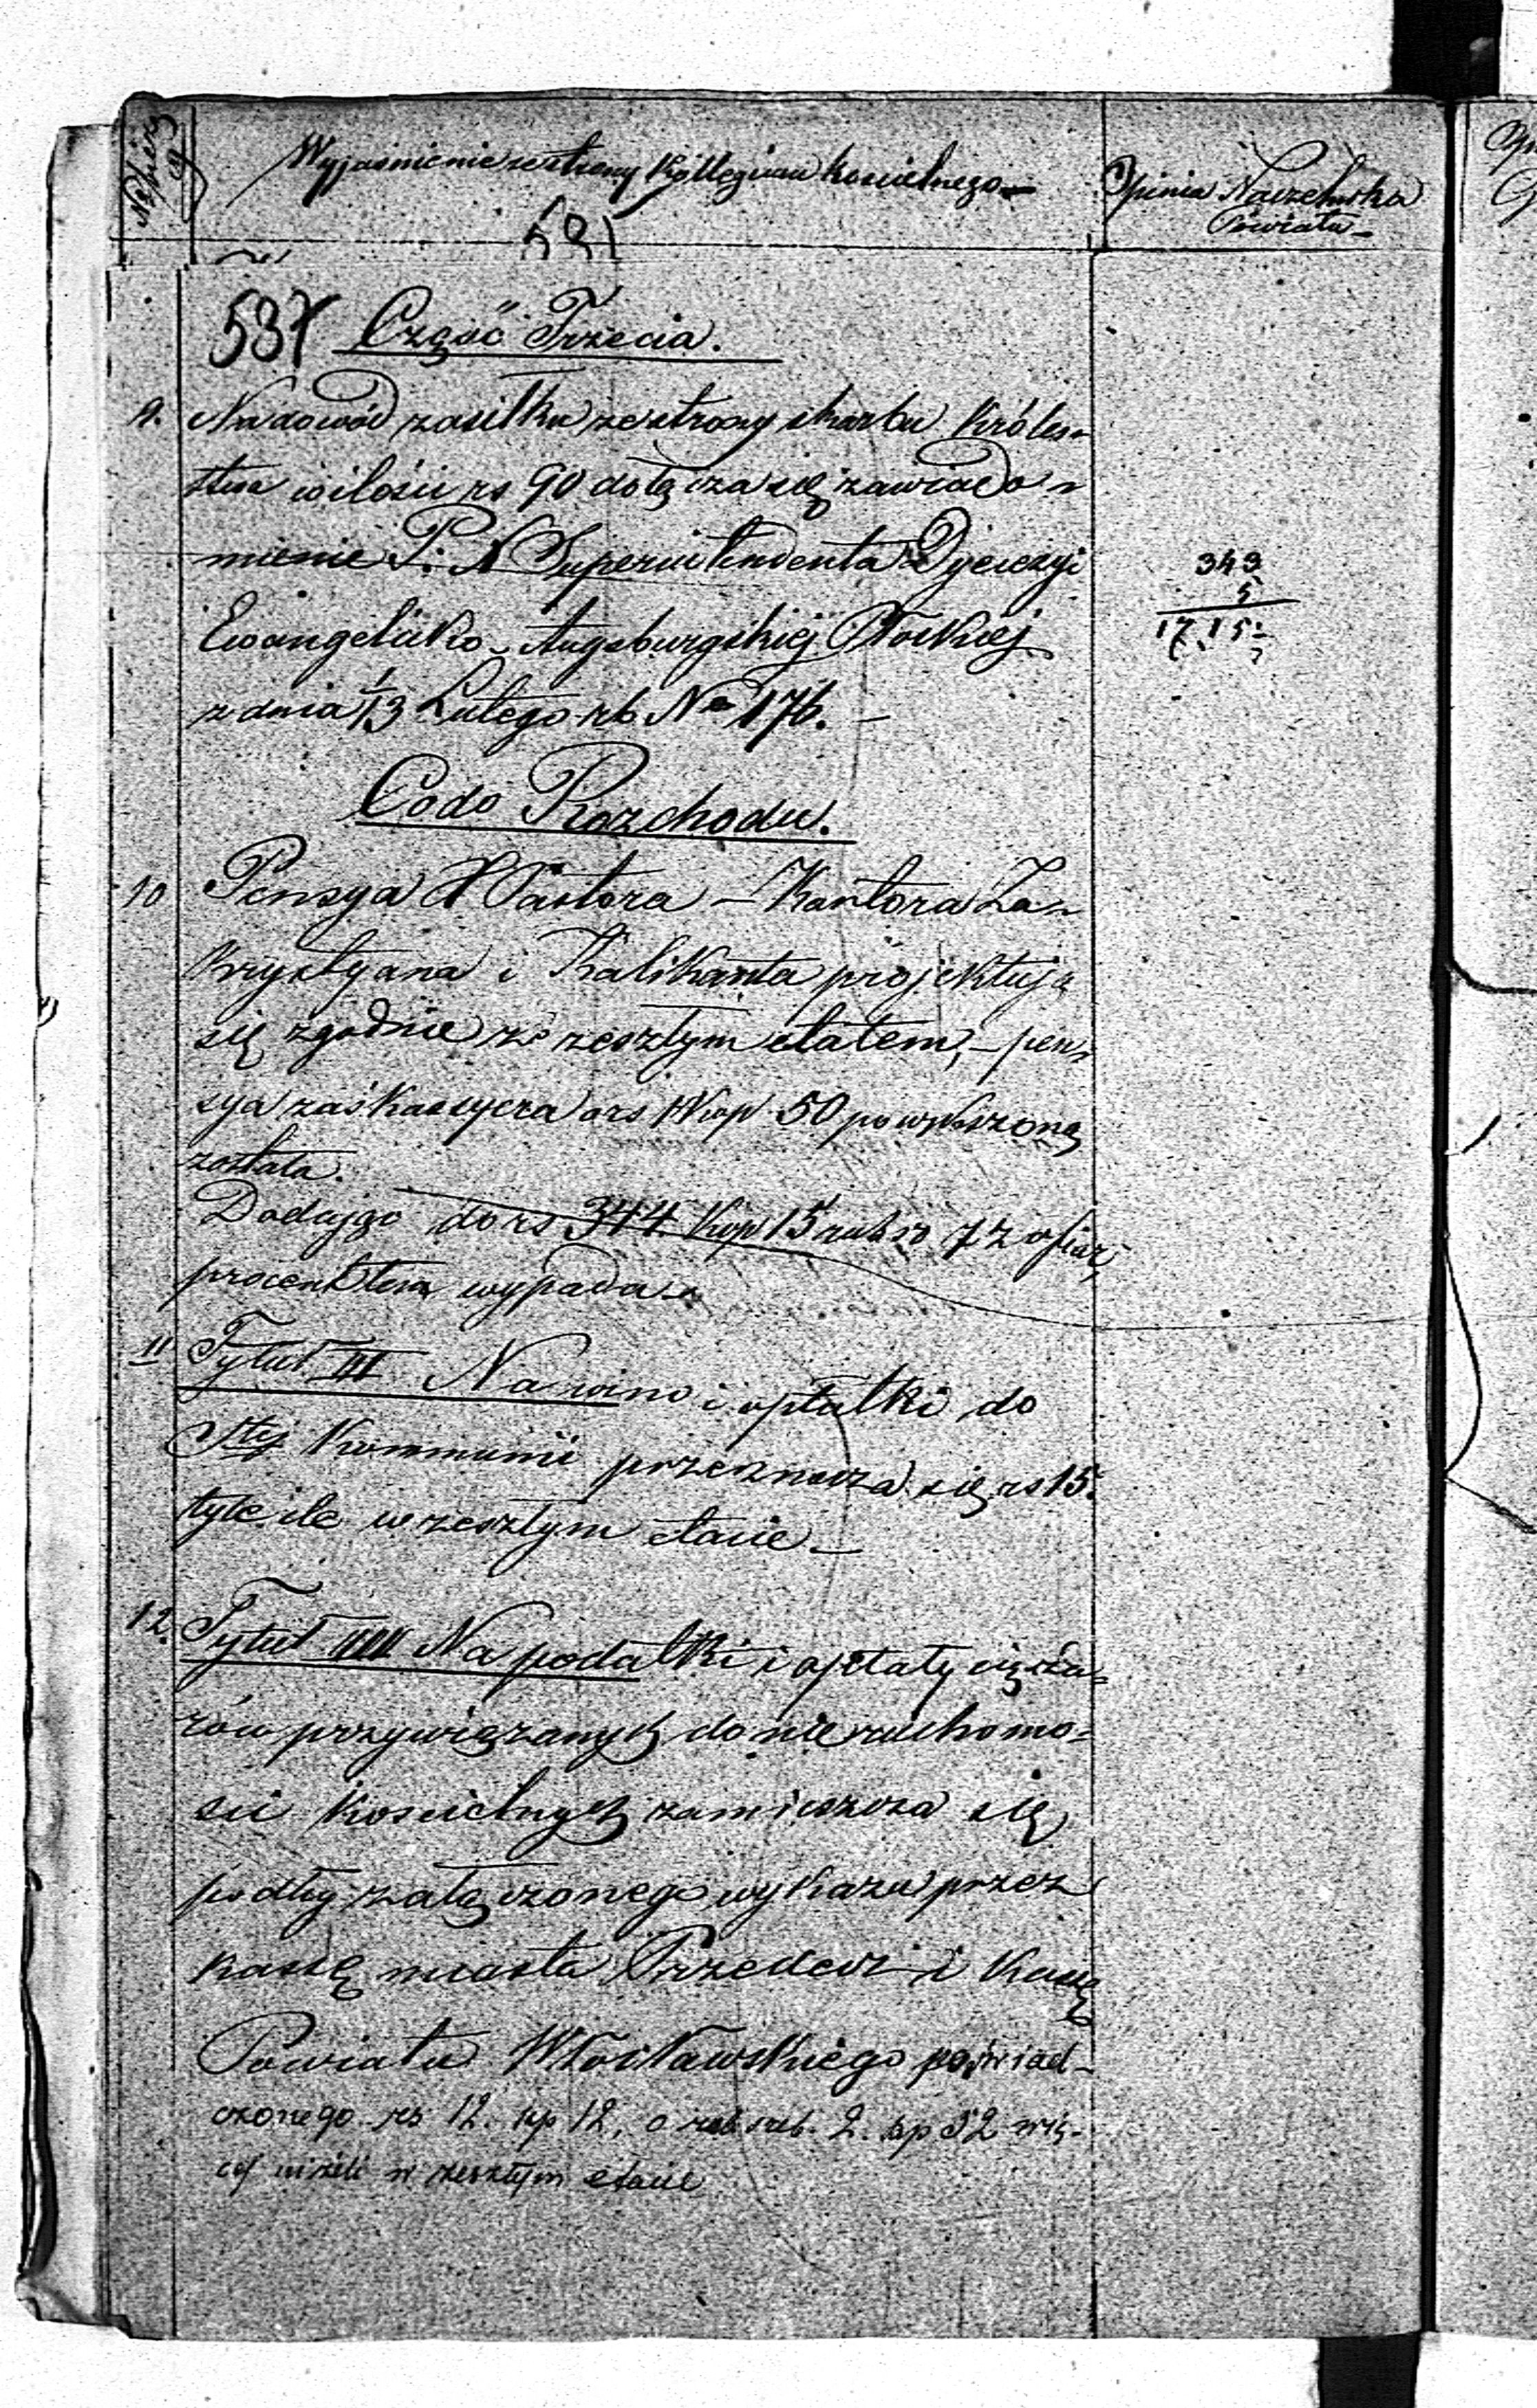 Wyjaśnienie ze strony Kollegium kościelnego
Opinia Naczelnika
Powiatu
531
537 Część Trzecia.
9. Na dowód zasiłku ze strony skarbu Króles-
stwa w ilości rs 90 dołącza się zawiado-
mienie P. N Superintendenta Dyecezyi
Ewangelicko-Augsburgskiej Płockiej
z dnia 1/13 Lutego rb No 176.
343
5
17.15
Co do Rozchodu.
10 Pensya X Pastora - Kantora Za-
krystyana i Kalikanta projektują
się zgodnie ze zeszłym etatem, - pen-
sya zaś Kassyera o rs kop 50 powiększoną
została.
Dodając do rs 344 kop 15 rub sr 72 ofiar,
procent ten wypada
11 Tytuł III Na wino i opłatki do
Stej Kommunii przeznacza się rs 15.
tyle ile w zeszłym etacie
12. Tytuł IIII Na podatki i opłaty cięża-
rów przywiązanych do nieruchomo-
ści Kościelnych zamieszcza się
podług załączonego wykazu przez
kassę miasta Przedecz i Kassę
Powiatu Włocławskiego poświad-
czonego rs 12. kp 12, o rub. sreb. 2. kp 52 wię-
cej niżeli w zeszłym etacie